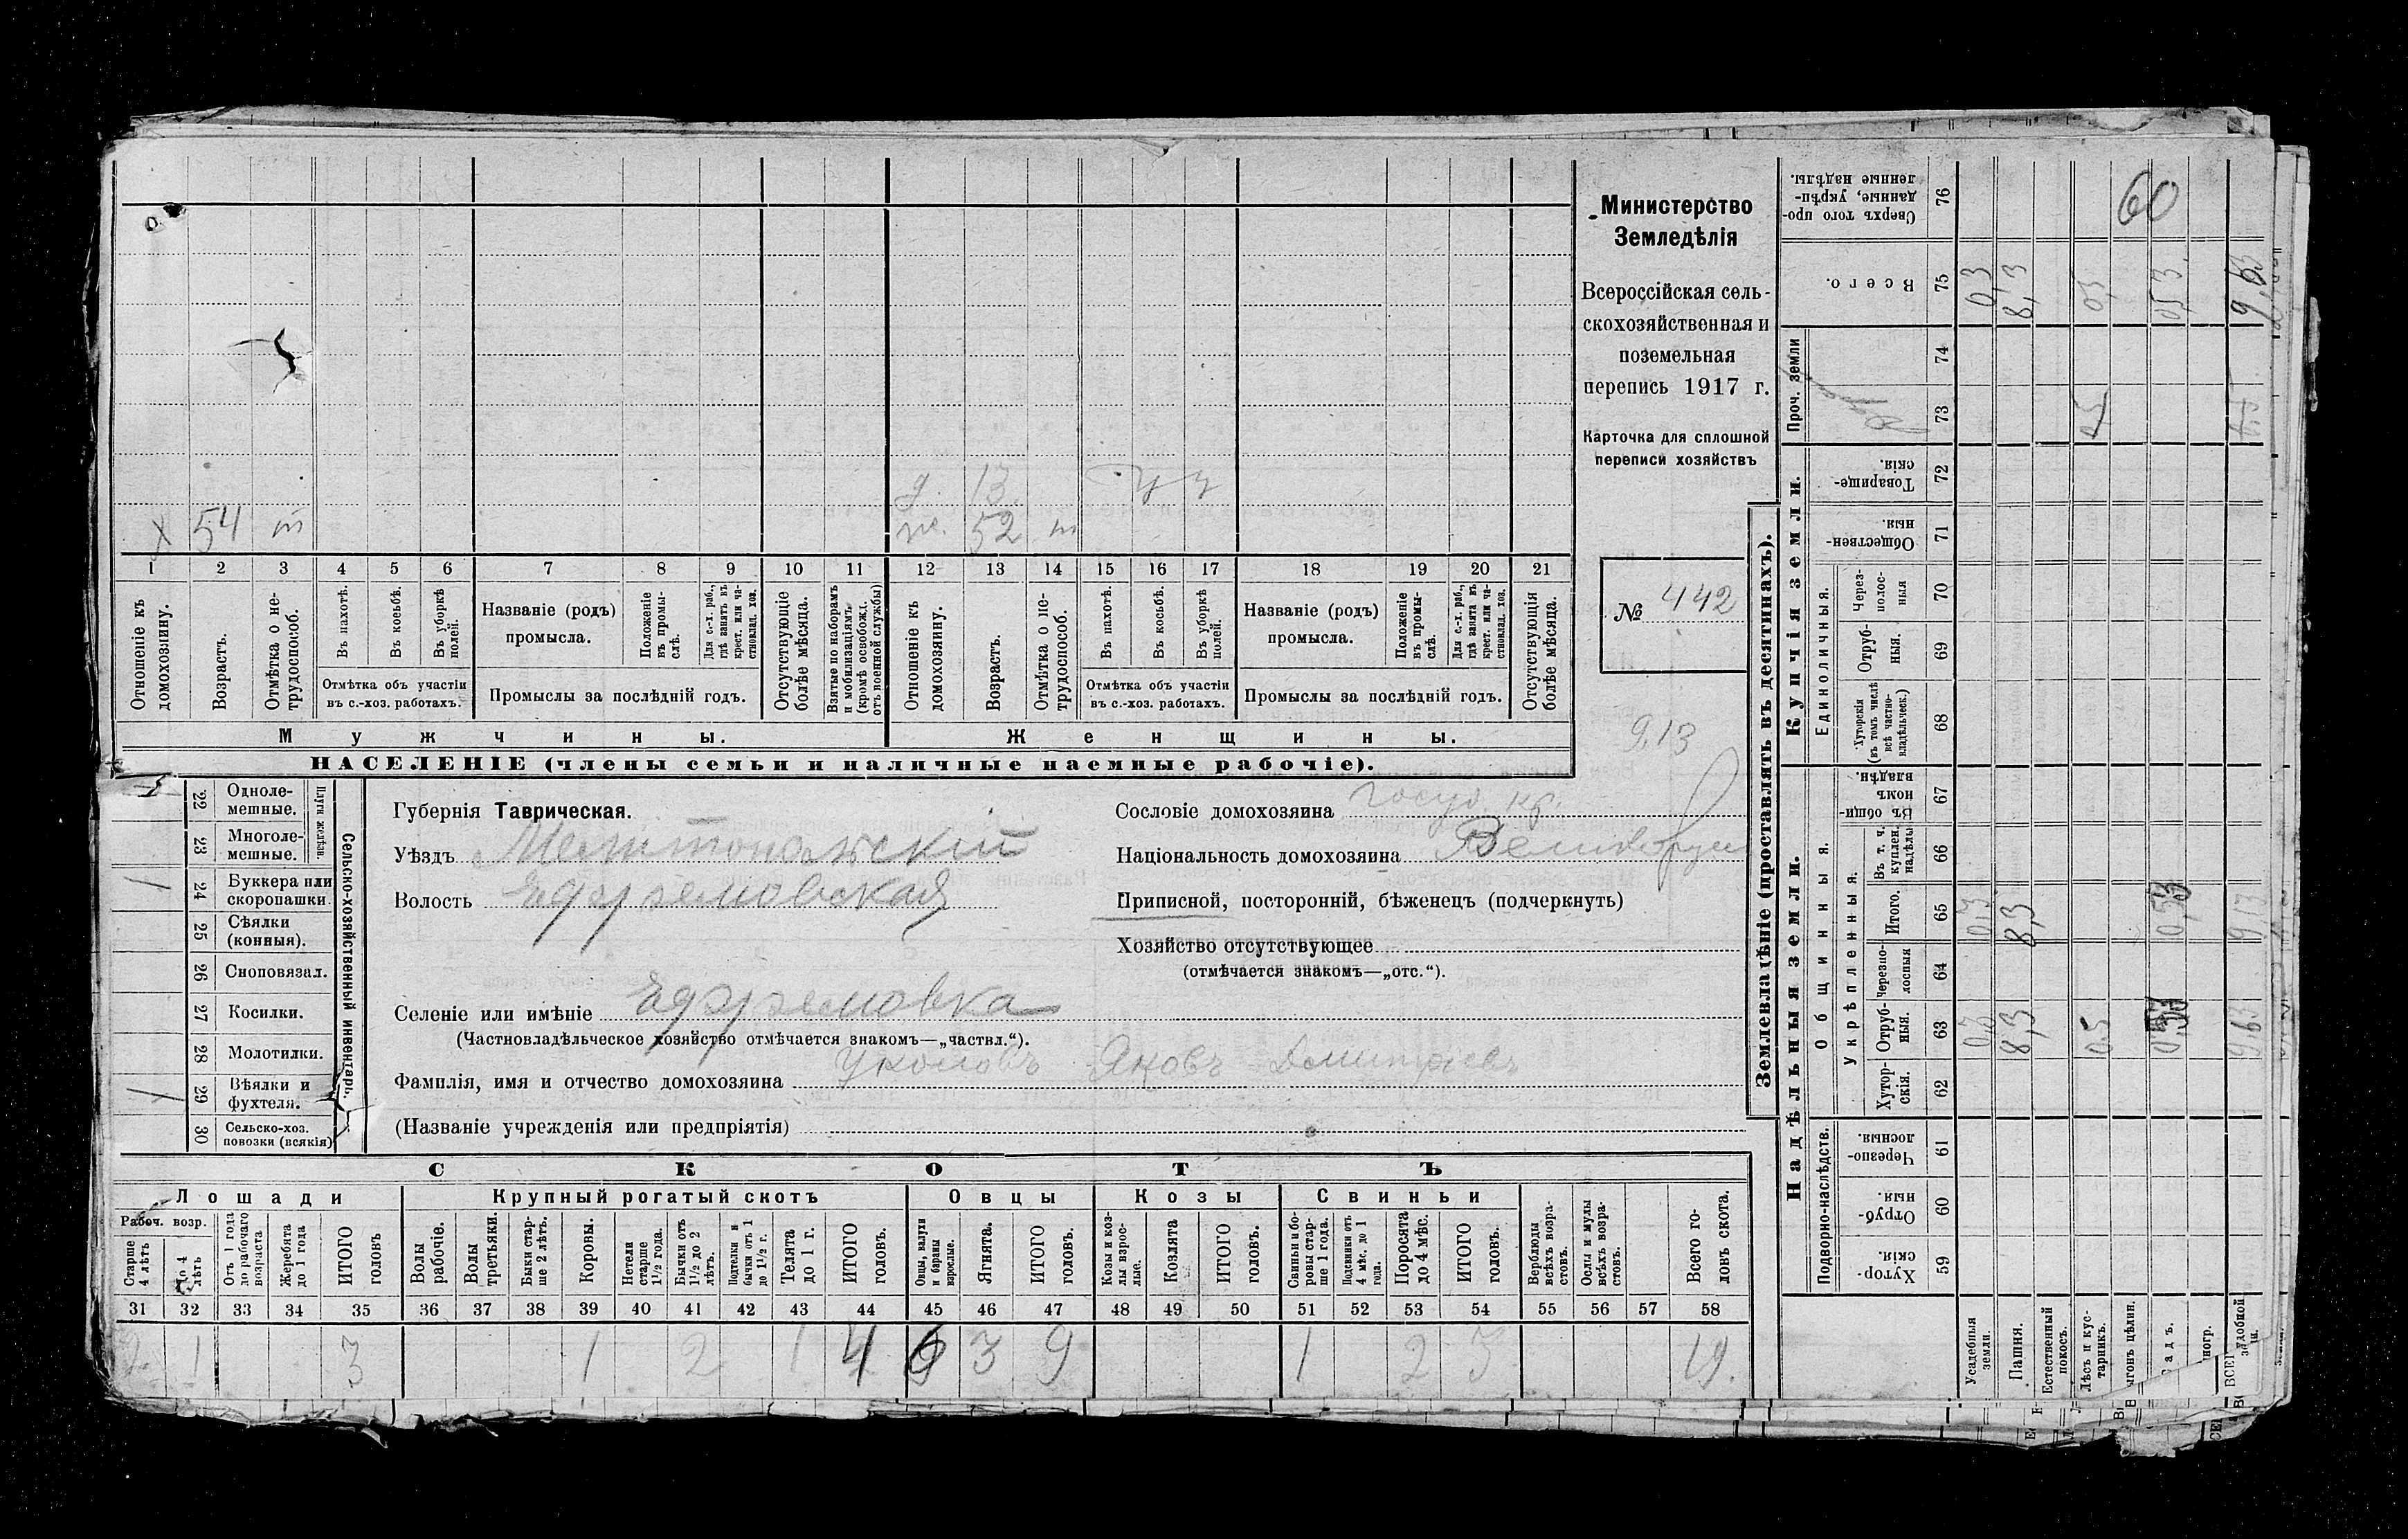 х 54 ж. 52
д. 13
1 2 3 4 5 6 7 8 9 10 11 12 13 14 15 16 17 18 19 20 21
Отношеніе къ домохозяину.
Возрастъ.
Отмѣтка о не-трудоспособ.
Въ пахотѣ.
Въ косьбѣ.
Въ уборкѣ полей.
Отмѣтка объ участіи
въ с.-хоз. работахъ.
Названіе (родъ)
промысла.
Положеніе въ промы-слѣ.
Для с.-х. раб., гдѣ занятъ въ крест. или ча-стновлад. хоз.
Промыслы за послѣдній годъ.
Отсутствующіе болѣе мѣсяца.
Взятые по наборамъ и мобилизаціямъ (кромѣ освобожд. отъ военной службы)
Отношеніе къ домохозяину.
Возрастъ.
Отмѣтка о не-трудоспособ.
Въ пахотѣ.
Въ косьбѣ.
Въ уборкѣ полей.
Отмѣтка объ участіи
въ с.-хоз. работахъ.
Названіе (родъ)
промысла.
Положеніе въ промы-слѣ.
Для с.-х. раб., гдѣ занята въ крест. или ча-стновлад. хоз.
Промыслы за послѣдній годъ.
Отсутствующія болѣе мѣсяца.
Мужчины.
Женщины.
НАСЕЛЕНІЕ (члены семьи и наличные наемные рабочіе).
Министерство
Земледѣлія
Всероссійская сель-
скохозяйственная и
поземельная
перепись 1917 г.
Карточка для сплошной
переписи хозяйствъ
№ 442
9,13
22 Одноле-мешные.
23 Многоле-мешные.
Плуги желѣзн.
24 Буккера или скоропашки.
25 Сѣялки (конныя).
26 Сноповязал.
27 Косилки.
28 Молотилки.
29 Вѣялки и фухтеля.
30 Сельско-хоз. повозки (всякія)
Сельско-хозяйственный инвентарь.
Губернія Таврическая.
Уѣздъ Мелитопольскій
Волость Ефремовская
Селеніе или имѣніе Ефремовка
(Частновладѣльческое хозяйство отмѣчается знакомъ—„частвл.“).
Фамилія, имя и отчество домохозяина Уколовъ Яковъ Дмитріевъ
(Названіе учрежденія или предпріятія)
Сословіе домохозяина Госуд. кр.
Національность домохозяина Великорус
Приписной, посторонній, бѣженецъ (подчеркнуть)
Хозяйство отсутствующее
(отмѣчается знакомъ—„отс.“).
СКОТЪ
Лошади Крупный рогатый скотъ Овцы Козы Свиньи
Рабоч. возр.
Старше 4 лѣтъ
До 4 лѣтъ
Отъ 1 года до рабочаго возраста
Жеребята до 1 года
ИТОГО головъ
Волы рабочіе.
Волы третьяки.
Быки стар-ше 2 лѣтъ.
Коровы.
Нетели старше 1½ года.
Бычки отъ 1½ до 2 лѣтъ.
Подтелки и бычки отъ 1 до 1½ г.
Телята до 1 г.
ИТОГО головъ.
Овцы, валухи и бараны взрослые.
Ягнята.
ИТОГО головъ.
Козы и коз-лы взрос-лые.
Козлята
ИТОГО головъ.
Свиньи и бо-ровы стар-ше 1 года.
Подсвинки отъ 4 мѣс. до 1 года.
Поросята до 4 мѣс.
ИТОГО головъ.
Верблюды всѣхъ возра-стовъ.
Ослы и мулы всѣхъ возра-стовъ.
Всего го-ловъ скота.
31 32 33 34 35 36 37 38 39 40 41 42 43 44 45 46 47 48 49 50 51 52 53 54 55 56 57 58
2 1 3 1 2 1 4 6 3 9 1 2 3 19.
Землевладѣніе (проставлять въ десятинахъ).
Надѣльныя земли.
Купчія земли.
Проч. земли
Подворно-наслѣдств.
Общинныя.
Укрѣпленныя.
Единоличныя.
59 Хутор-скія.
60 Отруб-ныя.
61 Черезпо-лосныя.
62 Хутор-скія.
63 Отруб-ныя.
64 Черезпо-лосныя
65 Итого.
66 Въ т. ч. куплен. надѣлы
67 Въ общи-номъ владѣн.
68 Хуторскія (въ томъ числѣ всѣ частно-владѣльческ.)
69 Отруб-ныя.
70 Через-полос-ныя
71 Обществен-ныя.
72 Товарище-скія.
73
74
75 Всего.
76 Сверхъ того про-данные, укрѣп-ленные надѣлы.
Усадебныя земли. 0,3 0,3 0,3
Пашня. 8,3 8,3 8,3
Естественный покосъ.
Лѣсъ и кус-тарникъ. 0,5
60
9,63 9,13